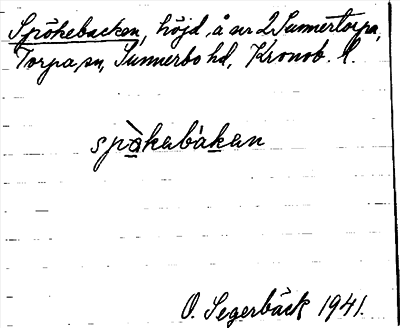 Spöhebacken, höjd, å nr 2 Sunnertorpa,
Torpa sn, Sunnerbo hd, Kronob. l.
spòkabàkan
O. Segerbäck 1941.